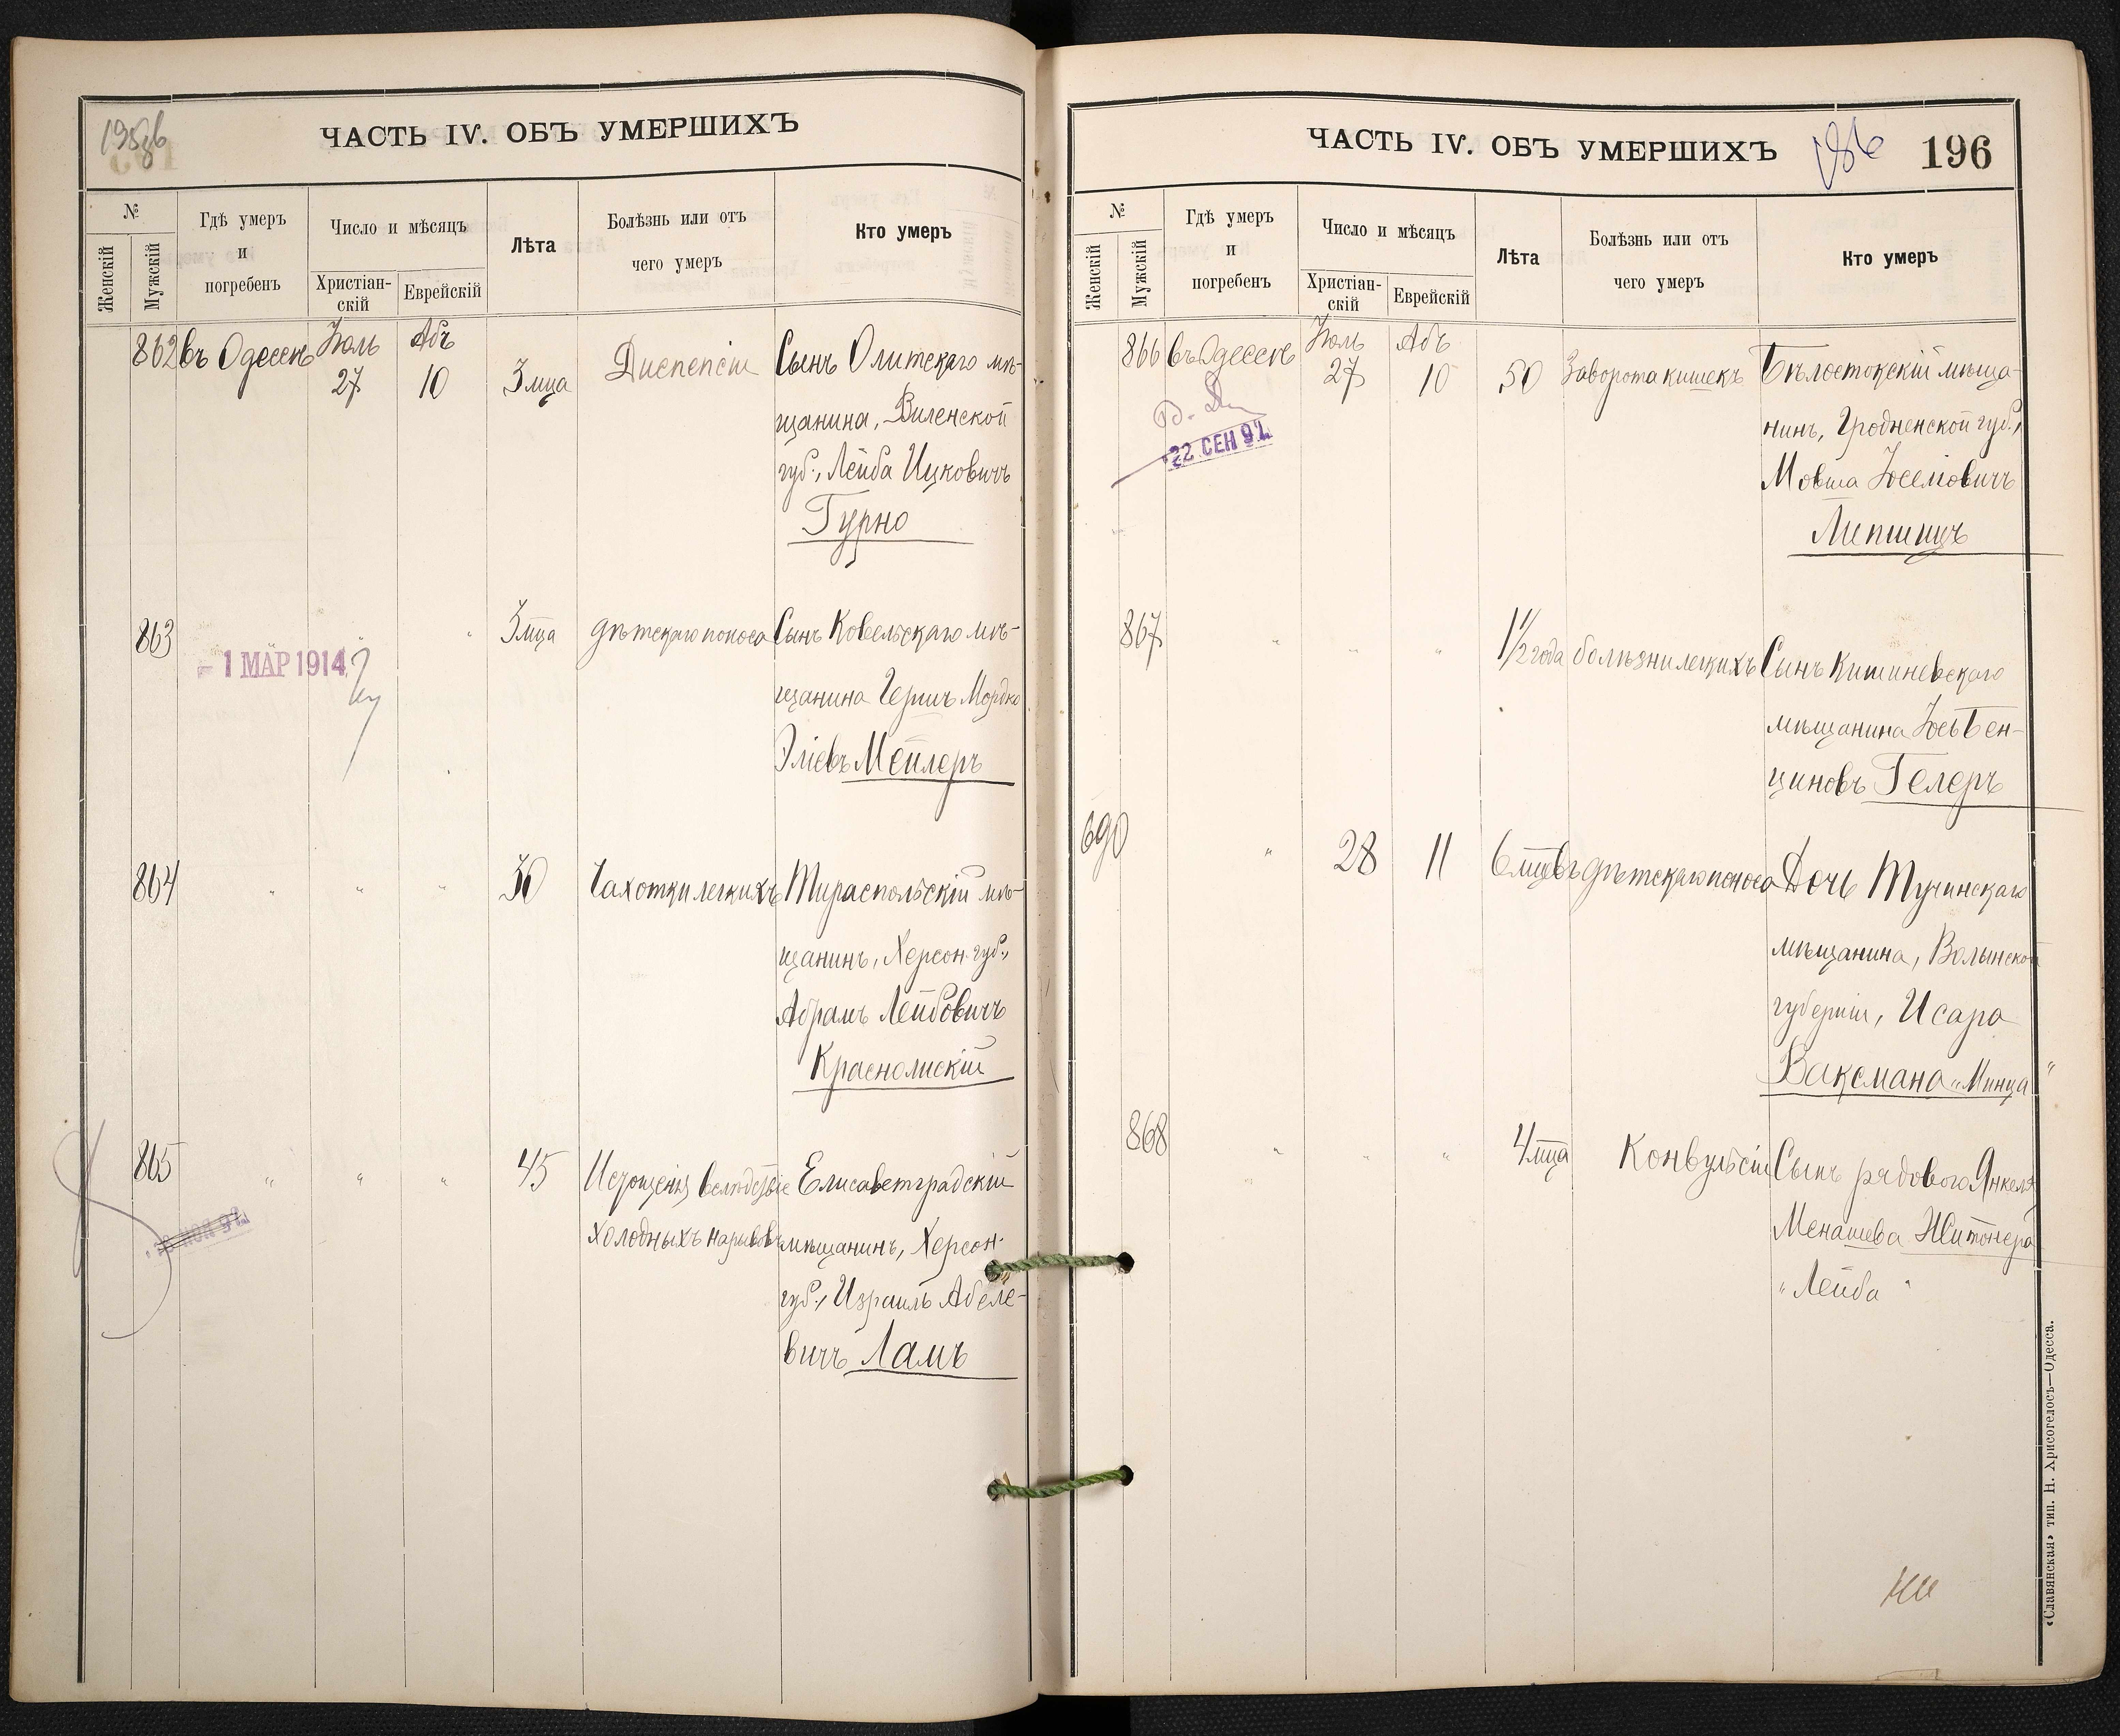 ЧАСТЬ IV. ОБЪ УМЕРШИХЪ
№
Женскій
Мужскій
Гдѣ умеръ
и
погребенъ
Число и мѣсяцъ
Христіан-
скій
Еврейскій
Лѣта
Болѣзнь или отъ
чего умеръ
Кто умеръ
862 въ Одессѣ Іюль 27 Абъ 10 3 мца Диспепсіи Сынъ Олитскаго мѣ-
щанина, Виленской
губ., Лейба Ицковичъ
Гурно
863 " " 3 мца дѣтскаго поноса Сынъ Ковельскаго мѣ-
щанина Гершъ Мордко
Эліевъ Мейлеръ
- 1 МАР 1914
864 " " " 30 Чахотки легкихъ Тираспольскій мѣ-
щанинъ, Херсон. губ.,
Абрамъ Лейбовичъ
Краснолискій
865 " " " 45 Истощенія вслѣдствіе Елисаветградскій
холодныхъ нарывовъ мѣщанинъ, Херсон.
губ., Израиль Абеле-
вичъ Ламъ
ЧАСТЬ IV. ОБЪ УМЕРШИХЪ
196
196
№
Женскій
Мужскій
Гдѣ умеръ
и
погребенъ
Число и мѣсяцъ
Христіан-
скій
Еврейскій
Лѣта
Болѣзнь или отъ
чего умеръ
Кто умеръ
866 въ Одессѣ Іюль 27 Абъ 10 50 Заворота кишекъ Бѣлостокскій мѣща-
нинъ, Гродненской губ.,
Мовша Іоселіовичъ
Лепшицъ
22 СЕН 92
867 " " " 1 1/2 года болѣзни легкихъ Сынъ Кишиневскаго
мѣщанина Іось Бен-
ціновъ Гелеръ
690 " 28 11 6 мцевъ дѣтскаго поноса Дочь Тучинскаго
мѣщанина, Волынской
губерніи, Исара
Ваксмана "Минца"
868 " " " 4 мца Конвульсіи Сынъ рядового Янкеля
Менашева Житонера
"Лейба"
«Славянская» тип. Н. Хрисогелосъ—Одесса.